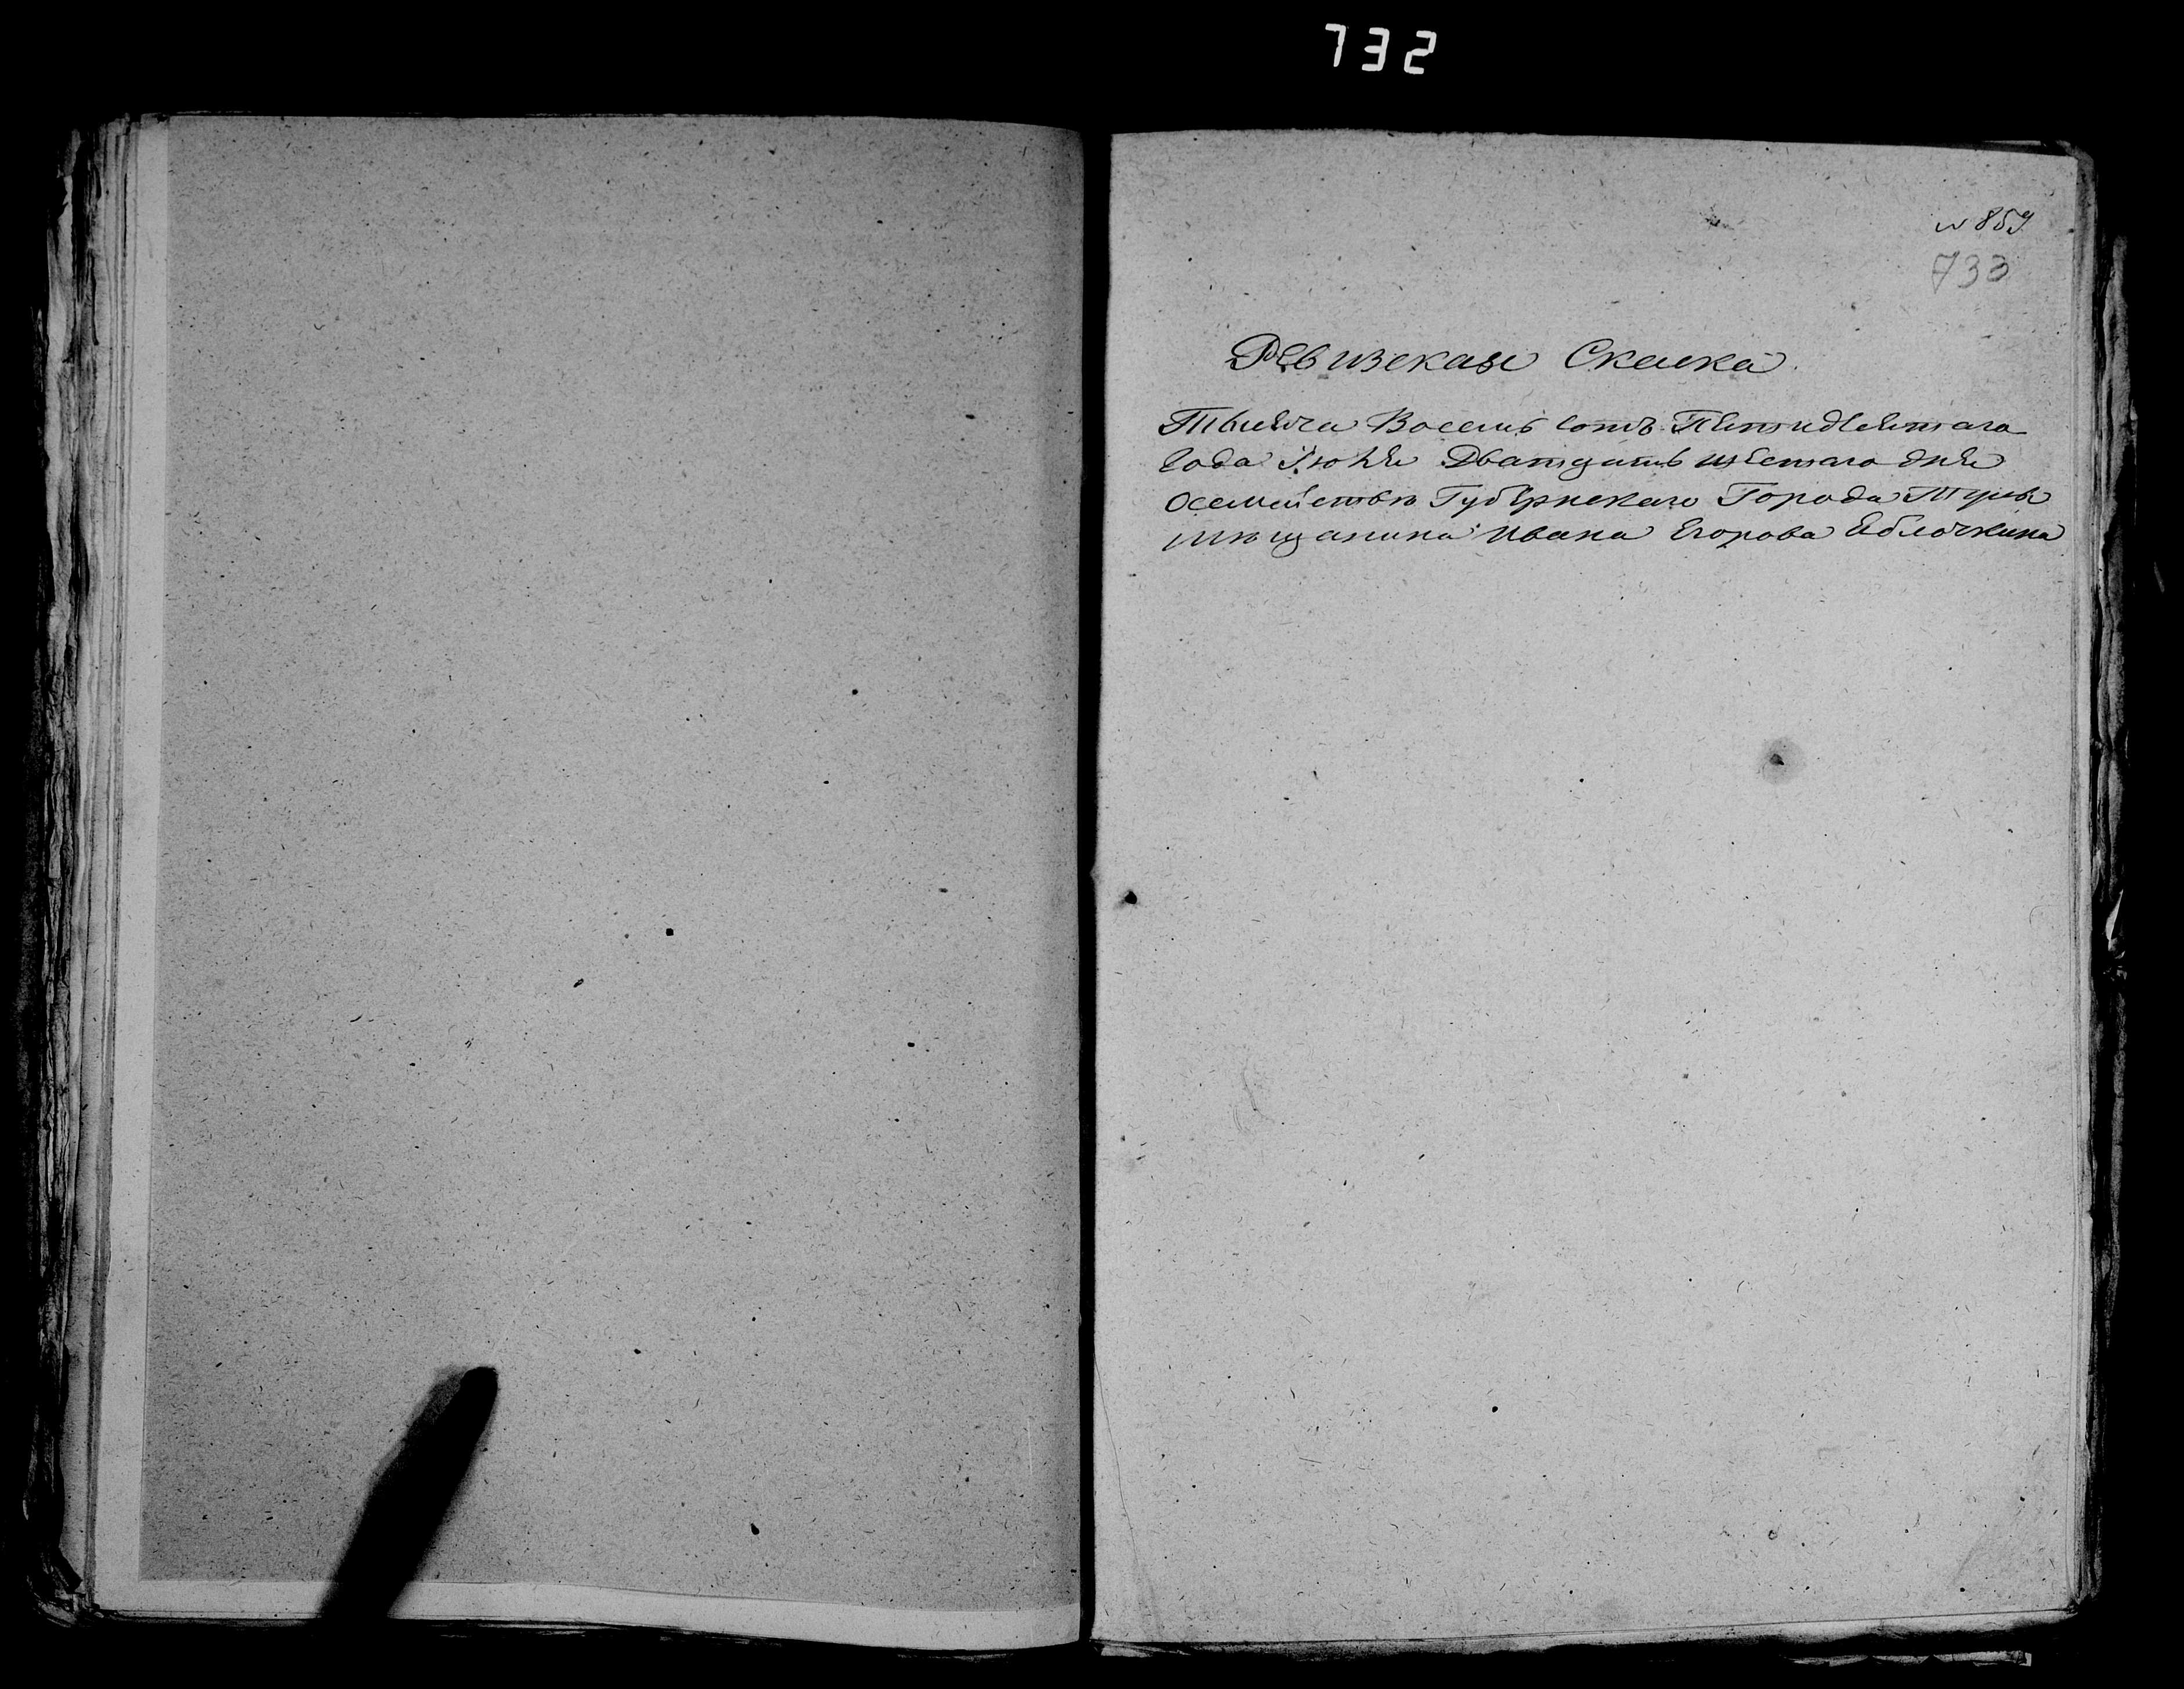 732
№ 859
733
Ревизская Скаска
Тысяча Восемь сотъ Петидесятаго
Года Июня Дватцать шестаго дня
Осемействѣ Губернскаго Города Тулы
мѣщанина Ивана Егорова Яблочкина